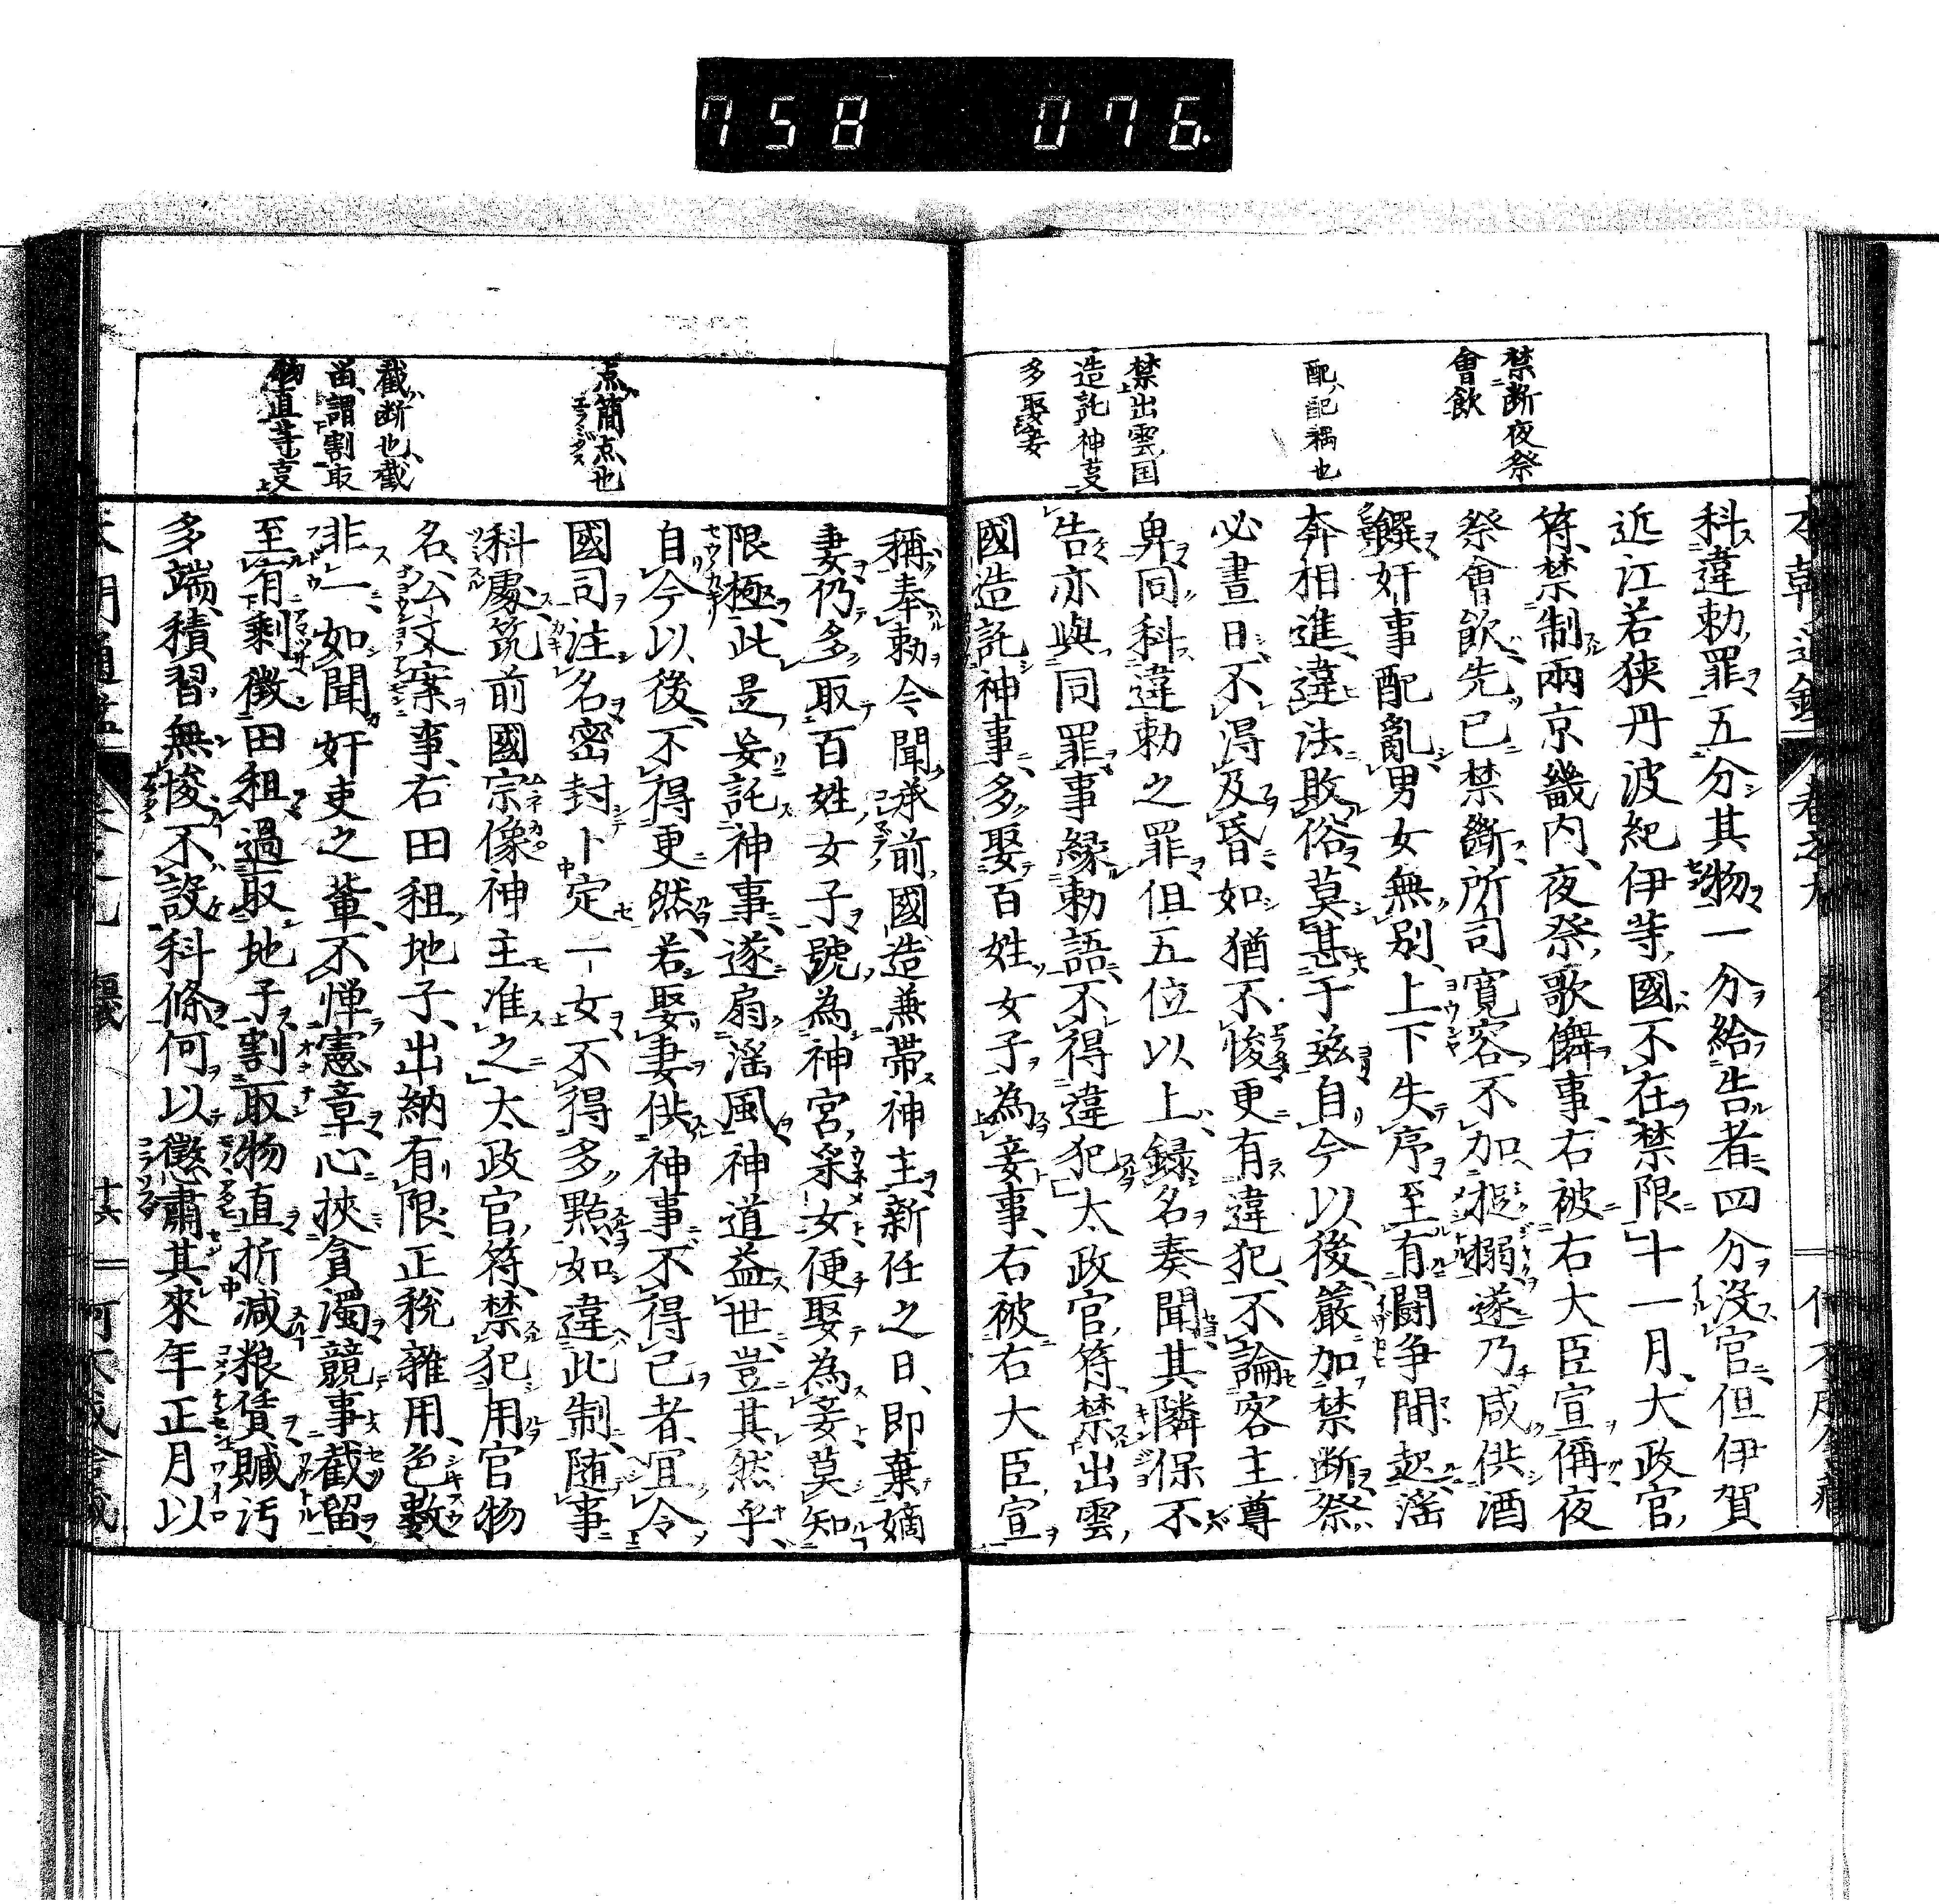 758 076.
禁断夜祭
會飲
配、配耦也
禁出雲国
造託神事
多娶妾
科違勅罪五分其物一分給告者四分没官但伊賀
近江若狭丹波紀伊等國不在禁限十一月大政官
符禁制兩京畿内夜祭歌儛事右被右大臣宣偁夜
祭會飲先已禁斷所司寛容不加捉搦遂乃咸供酒
饌奸事配亂男女無別上下失序至有闘争間起滛
奔相進違法敗俗莫甚于兹自今以後嚴加禁断祭
必晝日不得及昏如猶不悛更有違犯不論客主尊
卑同科違勅之罪但五位以上録名奏聞其隣保不
告亦與同罪事縁勅語不得違犯太政官符禁出雲
國造託神事多娶百姓女子為妾事右被右大臣宣
点、簡点也
截断也、截
留、謂割取
物直等事
稱奉勅今聞承前國造兼帯神主新任之日即棄嫡
妻仍多取百姓女子號為神宮采女便娶為妾莫知
限極此是妄託神事遂扇滛風神道益世豈其然乎
自今以後不得更然若娶妻供神事不得已者宜令
國司注名密封卜定一女不得多點如違此制随事
科處筑前國宗像神主准之太政官符禁犯用官物
名公文案事右田租地子出納有限正税雜用色數
非一如聞奸吏之輩不憚憲章心挟貪濁競事截留
至有剩徴田租過取地子割取物直折減粮賃贓汚
多端積習無悛不設科條何以懲肅其來年正月以